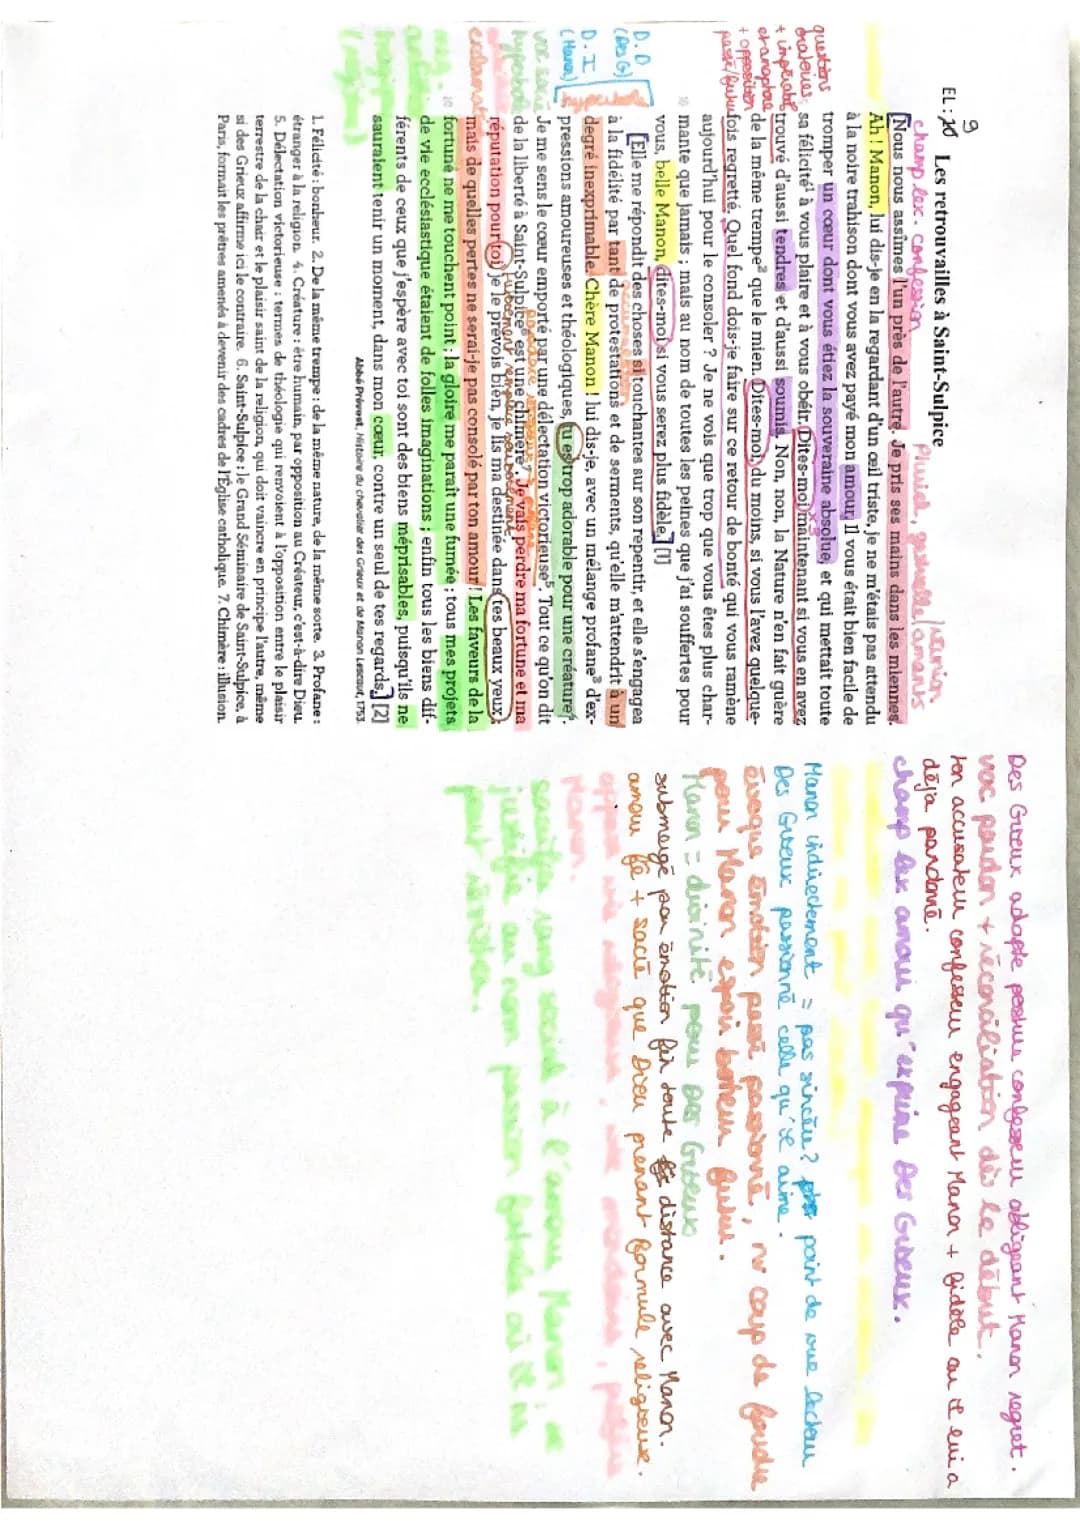 EL : 9 Les retrouvailles à Saint-Sulpice
champ lex. confession
Pluriel, gestuelle/amants
réunion
[Nous nous assîmes l'un près de l'autre. Je pris ses mains dans les miennes.
Ah ! Manon, lui dis-je en la regardant d'un œil triste, je ne m'étais pas attendu
à la noire trahison dont vous avez payé mon amour. Il vous était bien facile de
tromper un cœur dont vous étiez la souveraine absolue, et qui mettait toute
sa félicité¹ à vous plaire et à vous obéir. Dites-moi maintenant si vous en avez
trouvé d'aussi tendres et d'aussi soumis. Non, non, la Nature n'en fait guère
de la même trempe² que le mien. Dites-moi, du moins, si vous l'avez quelque-
fois regretté. Quel fond dois-je faire sur ce retour de bonté qui vous ramène
aujourd'hui pour le consoler ? Je ne vois que trop que vous êtes plus char-
10 mante que jamais ; mais au nom de toutes les peines que j'ai souffertes pour
vous, belle Manon, dites-moi si vous serez plus fidèle.] [1]
[Elle me répondit des choses si touchantes sur son repentir, et elle s'engagea
à la fidélité par tant de protestations et de serments, qu'elle m'attendrit à un
degré inexprimable. Chère Manon ! lui dis-je, avec un mélange profane³ d'ex-
pressions amoureuses et théologiques, tu es trop adorable pour une créature⁴.
Je me sens le cœur emporté par une délectation victorieuse⁵. Tout ce qu'on dit
de la liberté à Saint-Sulpice⁶ est une chimère⁷. Je vais perdre ma fortune et ma
réputation pour toi, je le prévois bien, je lis ma destinée dans tes beaux yeux ;
mais de quelles pertes ne serai-je pas consolé par ton amour ! Les faveurs de la
fortune ne me touchent point ; la gloire me paraît une fumée ; tous mes projets
de vie ecclésiastique étaient de folles imaginations ; enfin tous les biens dif-
férents de ceux que j'espère avec toi sont des biens méprisables, puisqu'ils ne
sauraient tenir un moment, dans mon cœur, contre un seul de tes regards.] [2]
Abbé Prévost, Histoire du chevalier des Grieux et de Manon Lescaut, 1753.
1. Félicité : bonheur. 2. De la même trempe : de la même nature, de la même sorte. 3. Profane :
étranger à la religion. 4. Créature : être humain, par opposition au Créateur, c'est-à-dire Dieu.
5. Délectation victorieuse : termes de théologie qui renvoient à l'opposition entre le plaisir
terrestre de la chair et le plaisir saint de la religion, qui doit vaincre en principe l'autre, même
si des Grieux affirme ici le contraire. 6. Saint-Sulpice : le Grand Séminaire de Saint-Sulpice, à
Paris, formait les prêtres amenés à devenir des cadres de l'Église catholique. 7. Chimère : illusion.
questions
oratoires
+ impératif
et anaphore
+ opposition
passé/futur
x3
D.D
(Des G)
D.I
(Manon)
hyperbole
Des Grieux adapte posture confesseur obligeant Manon regret.
voc pardon + réconciliation dès le début.
ton accusateur confesseur engageant Manon + fidèle au il lui a
déja pardonné.
champ lex amour qu'exprime Des Grieux.
Manon indirectement = pas sincère ? point de vue lecteur
Des Grieux passionné celle qu'il aime.
évoque émotion passé passionné, coup de foudre
pour Manon espoir bonheur futur.
Manon = divinité pour Des Grieux
submergé par émotion fin toute distance avec Manon.
amour + sacré que Dieu prenant formule religieuse.
Manon.
sacrifie rang social à l'amour Manon
justifie au nom passion fatale
peut résister.